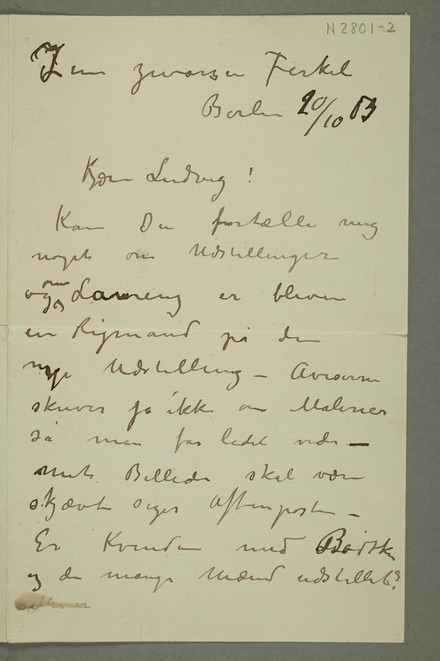 N 2801-2
Zum zwarzen Ferkel
Berlin 20/10 83
Kjære Ludvig!
Kan Du fortælle mig
noget om Udstillinger
og om Lavreng er bleven
en Rigmand på den
nye Udstilling – Aviserne
skriver jo ikke om Malerier
så man får lidet vide –
mit Billede skal være
skjævt siger Aftenposten –
Er Kvinden med
og de mange Mænd udstillet?